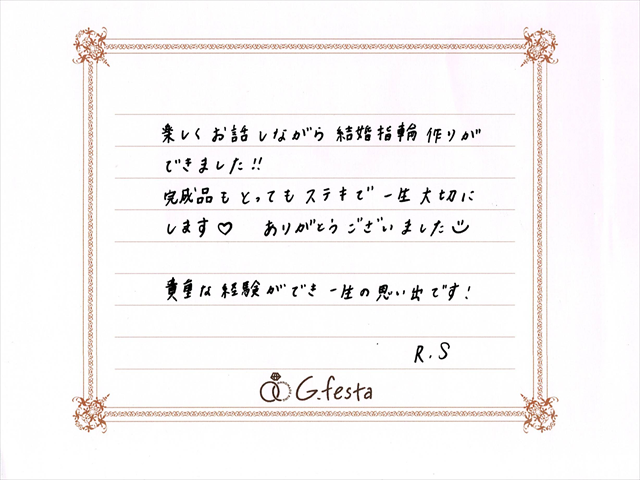 楽しくお話しながら結婚指輪作りが
できました!!
完成品もとってもステキで一生大切に
します♡ ありがとうございました
貴重な経験ができ一生の思い出です!
R.S
G.festa